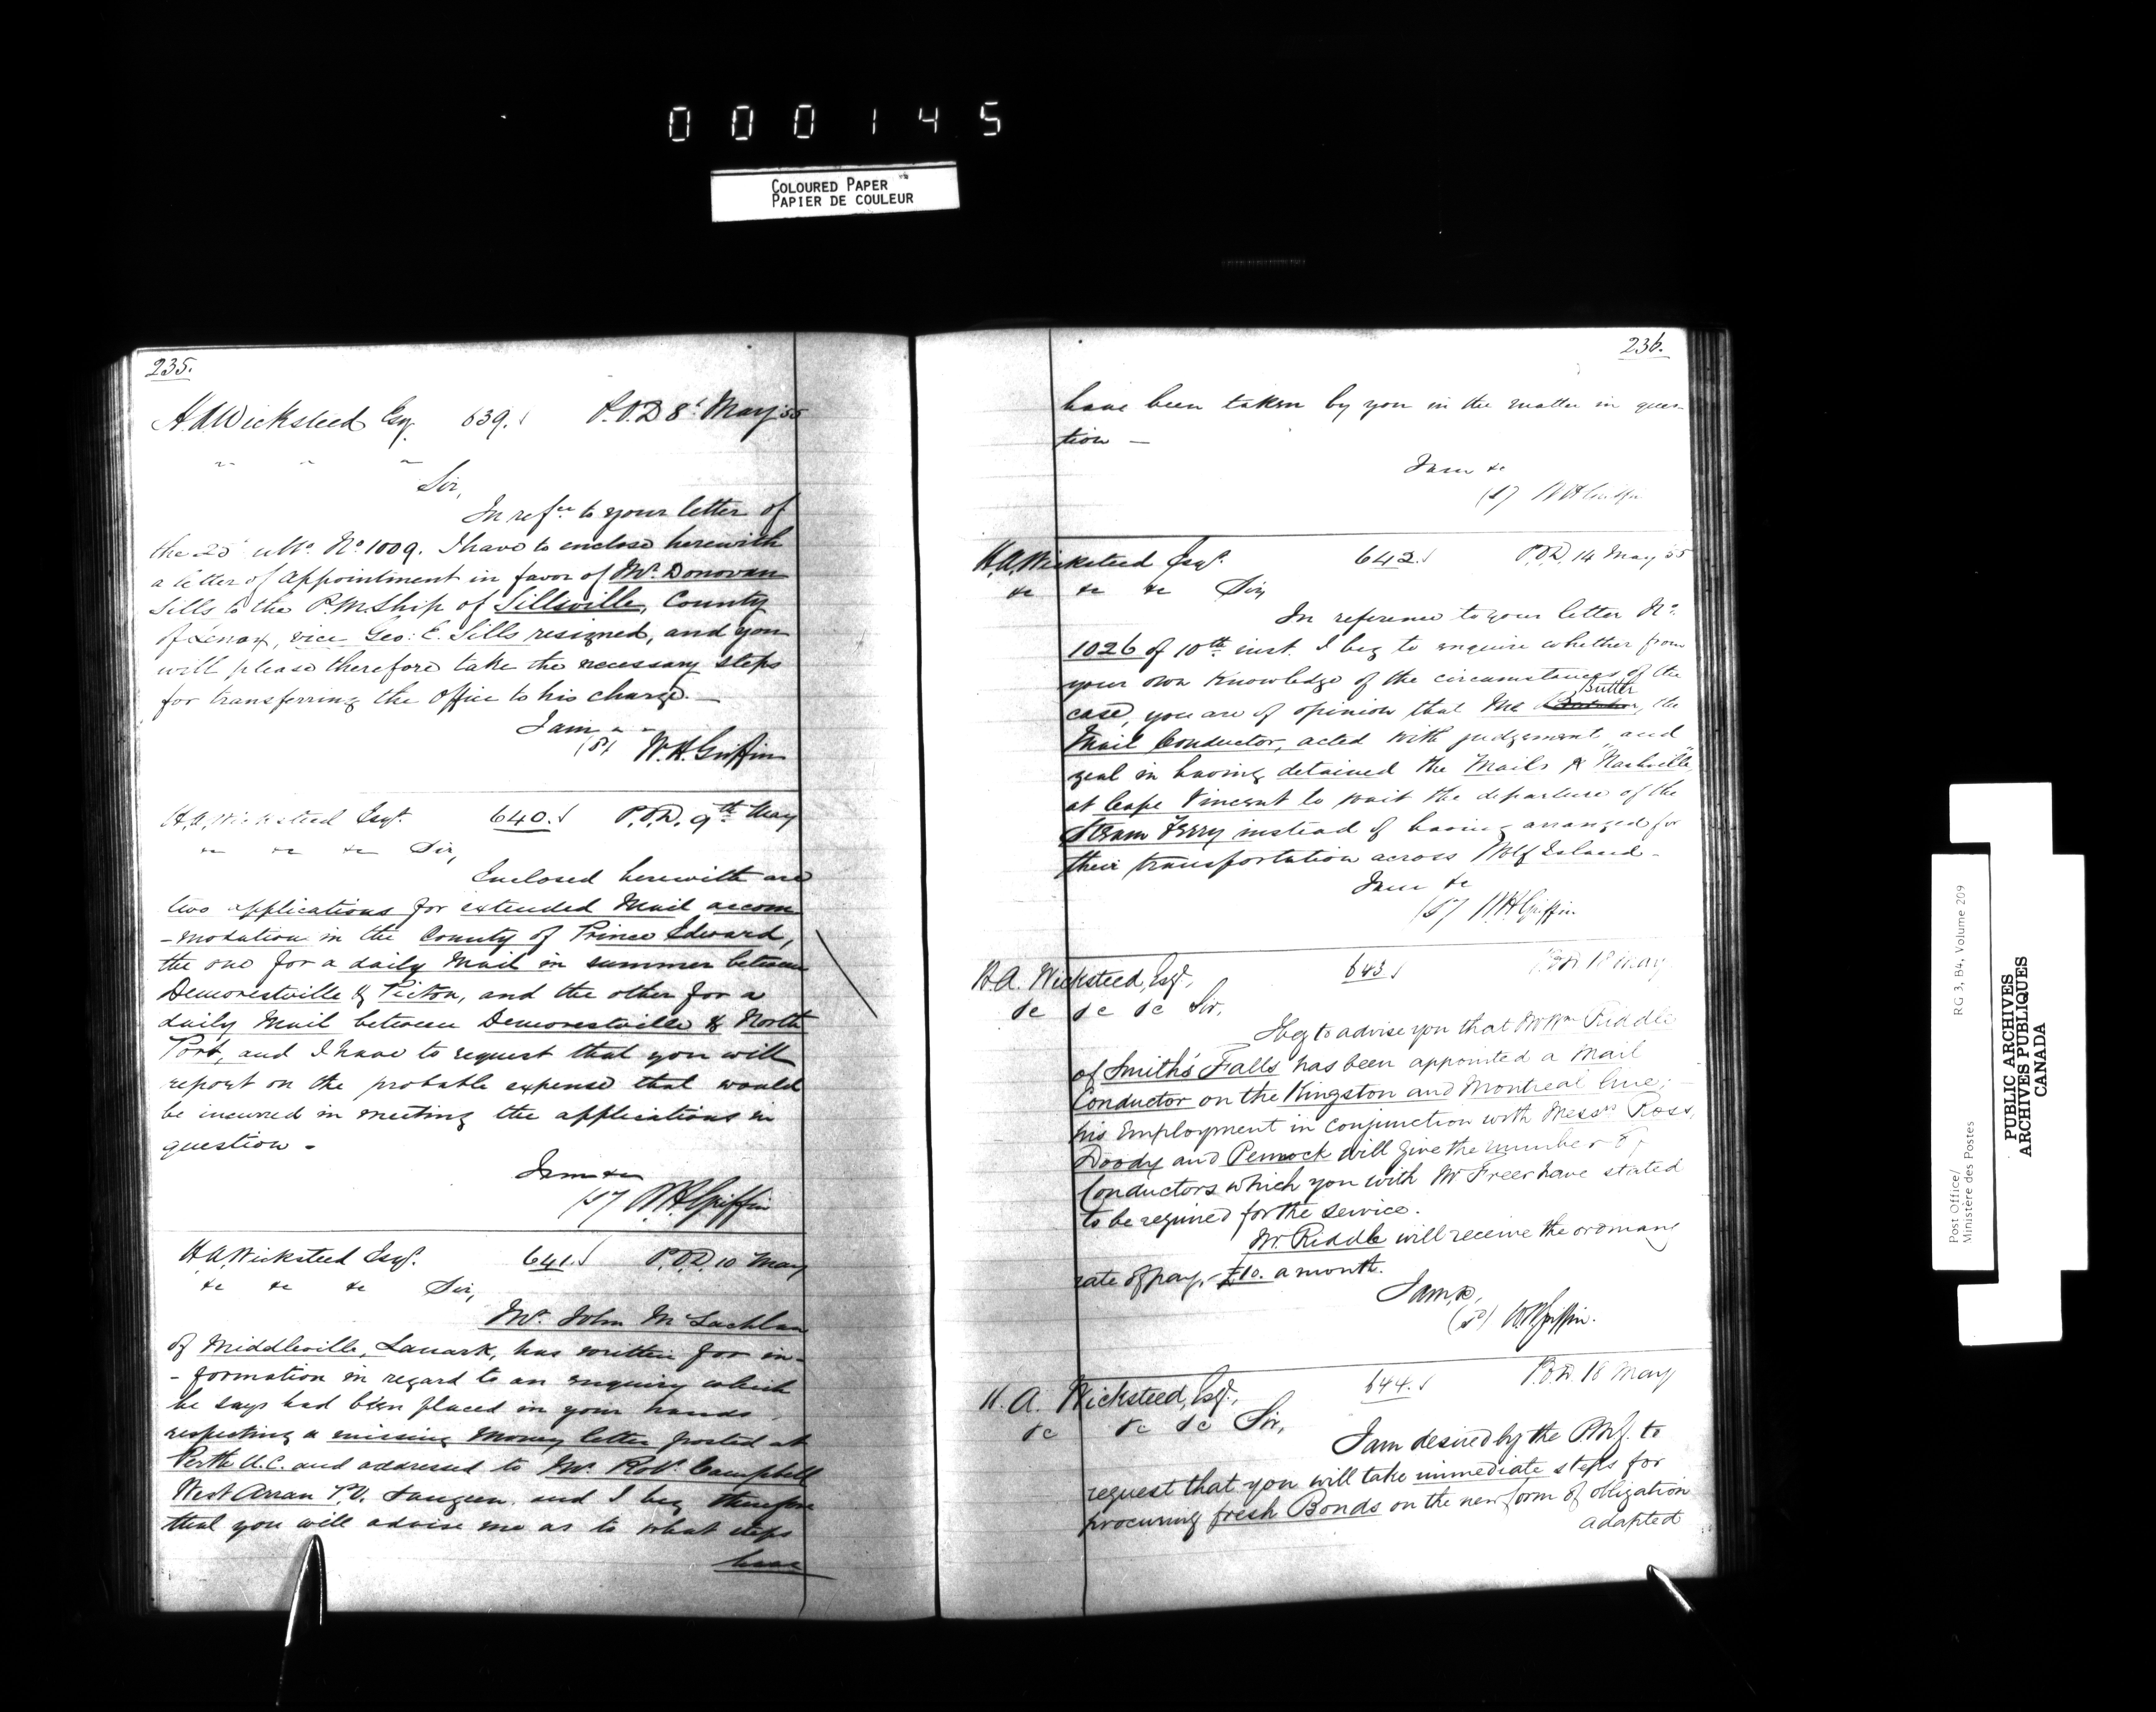 000145
COLOURED PAPER
PAPIER DE COULEUR
235.
H.A. Wicksteed Esq 639. P.O.D 8t May '55
" " "
Sir,
In refce to your letter of
the 25 ulto. No. 1009. I have to enclose herewith
a letter of appointment in favor of Mr. Donovan
Sills to the P.M.Ship of Sillsville, County
of Lenox, vice Geo: E. Sills resigned, and you
will please therefore take the necessary steps
for transferring the Office to his charge. —
I am " "
(sd) W.H. Griffin
H.A. Wicksteed Esqr. 640. P.O.D. 9th May
&c &c &c Sir,
Enclosed herewith are
two applications for extended Mail accom
-modation in the County of Prince Edward,
the one for a daily Mail in summer between
Demorestville & Picton, and the other for a
daily Mail between Demorestville & North
Port, and I have to request that you will
report on the probable expense that would
be incurred in meeting the applications in
question -
I am &c
(sd) W.H. Griffin
H.A. Wicksteed Esqr. 641. P.O.D. 10 May
&c &c &c Sir,
Mr. John McLachlan
of Middleville, Lanark, has written for in-
-formation in regard to an enquiry which
he says had been placed in your hands,
respecting a missing Money letter posted at
Perth U.C. and addressed to Mr. Robt. Campbell
West Arran P.O. Saugeen, and I beg therefore
that you will advise me as to what steps
have
236.
have been taken by you in the matter in ques-
tion —
I am &c
(sd) W H Griffin
H.A. Wicksteed Esqr. 642. P.O.D. 14 May '55
&c &c &c Sir
In reference to your letter No.
1026 of 10th inst. I beg to enquire whether from
your own knowledge of the circumstances of the
Butler
case, you are of opinion that Mr. , the
Mail Conductor, acted with judgement and
zeal in having detained the Mails p "Nashville"
at Cape Vincent to wait the departure of the
Steam Ferry instead of having arranged for
their transportation across Wolf Island -
I am &c
(sd) W H Griffin
H.A. Wicksteed, Esqr., 643 P.O.D. 18 May
&c &c &c Sir,
I beg to advise you that Mr Wm Riddle
of Smith's Falls has been appointed a Mail
Conductor on the Kingston and Montreal line; —
his Employment in conjunction with Messrs Ross,
Doody and Pennock will give the number of
Conductors which you with Mr Freer have stated
to be required for the service.
Mr. Riddle will receive the ordinary
rate of pay, - £10. a month.
I am &c,
(sd) W.H. Griffin.
H. A. Wicksteed, Esqr., 644. P.O.D. 18 May
&c &c &c Sir,
I am desired by the P.M.G. to
request that you will take immediate steps for
procuring fresh Bonds on the new form of obligation
adapted
Post Office/
Ministère des Postes
RG 3, B4, Volume 209
PUBLIC ARCHIVES
ARCHIVES PUBLIQUES
CANADA